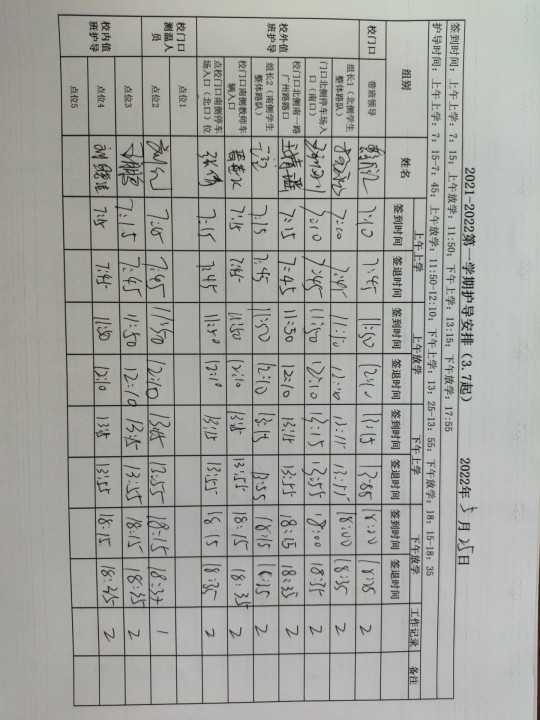 2021-2022第一学期护导安排（3.7起） 2022年5月25日
签到时间：上午上学：7:15；上午放学：11:50；下午上学：13:15；下午放学：17:55
护导时间：上午上学：7：15-7：45；上午放学：11:50-12:10；下午上学：13：25-13：55；下午放学：18：15-18：35
组别 姓名 上午上学 上午放学 下午上学 下午放学 工作记录 备注
签到时间 签退时间 签到时间 签退时间 签到时间 签退时间 签到时间 签退时间
校门口 带班领导 7:10 7:45 11:50 12:10 13:15 13:55 18:00 18:35 2
校外值班护导
组长1（北侧学生整体路队） 7:10 7:45 11:50 12:10 13:15 13:55 18:00 18:35 2
门口北侧停车场入口（南口） 7:10 7:45 11:50 12:10 13:15 13:55 18:00 18:35 2
校门口北侧南一路广州路路口 7:15 7:45 11:50 12:10 13:15 13:55 18:15 18:35 2
组长2（南侧学生整体路队） 7:15 7:45 11:50 12:10 13:15 13:55 18:15 2
校门口南侧教师车辆入口 7:15 7:45 11:50 12:10 13:15 13:55 18:15 18:35 2
点校门口南侧停车场入口（北口）位 张伟 7:15 7:45 11:50 12:10 13:15 13:55 18:15 18:35 2
校门口测温人员
点位1
点位2 7:05 7:45 11:50 12:10 13:05 13:55 18:15 18:37 1
校内值班护导
点位3 7:15 7:45 11:50 12:10 13:15 13:55 18:15 18:35 2
点位4 7:15 7:45 11:50 12:10 13:15 13:55 18:15 18:35 2
点位5